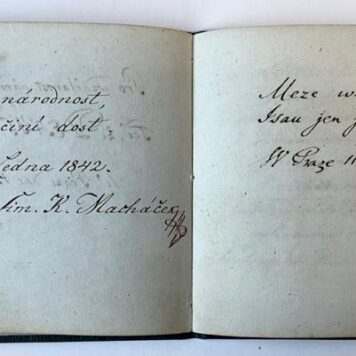 národnost,
činí dost
ledna 1842.
Sim. K. Macháček
Meze w
Jsau jen j
W Praze 11